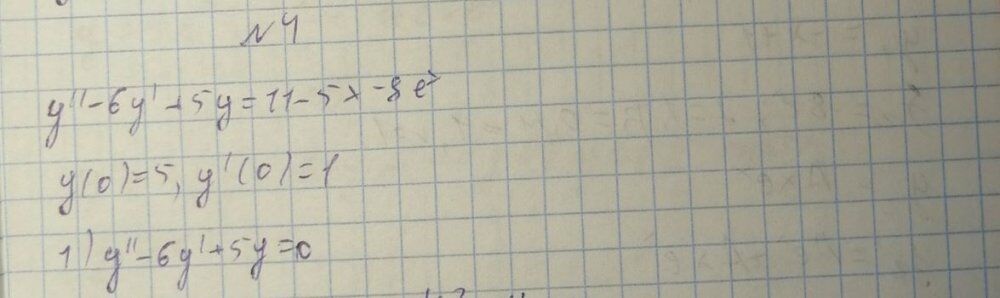 №4
y'' - 6y' + 5y = 11 - 5x - 8eˣ
y(0) = 5, y'(0) = 1
1) y'' - 6y' + 5y = 0